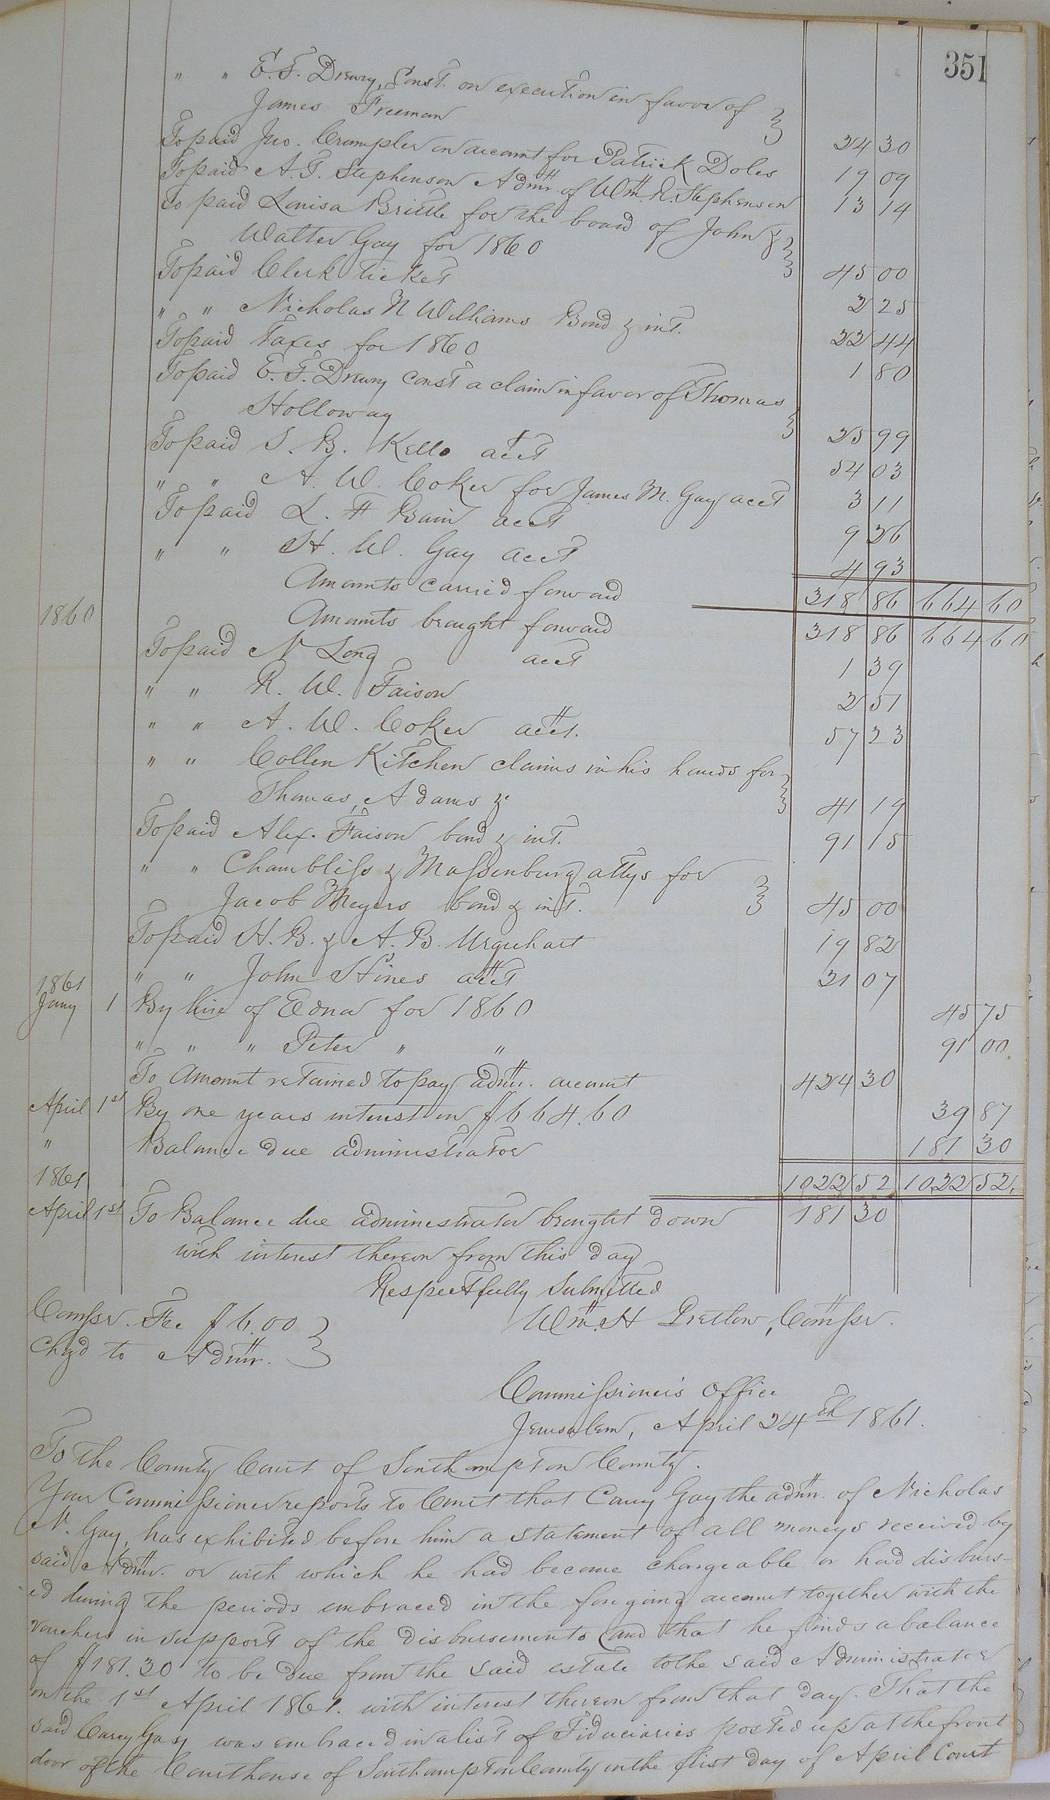 351
" " E. T. Drewry, Const. on execution in favor of
James Freeman 24 30
To paid Jno. Crumpler on account for Patrick Doles 19 09
To paid A. T. Stephenson Admr. of Wm. R. Stephenson 13 14
To paid Louisa Brittle for the board of John &
Walter Gay for 1860 45 00
To paid Clerk ticket 2 25
" " Nicholas N Williams Bond & int. 22 44
To paid Taxes for 1860 1 80
To paid E. T. Drewry Const a claim in favor of Thomas
Holloway 25 99
To paid S. B. Kello acct 54 03
" " A. W. Coker for James M. Gay acct 3 11
To paid L. H Bain acct 9 26
" " H. W. Gay acct 4 93
Amounts carried forward 318 86 664 60
1860 Amounts brought forward 318 86 664 60
To paid N Long acct 1 39
" " R. W. Faison 2 51
" " A. W. Coker acct. 57 23
" " Collen Kitchen claims in his hands for
Thomas, Adams &. 41 19
To paid Alex. Faison bond & int. 91 15
" " Chambliss & Massenburg attys for
Jacob Meyers bond & int. 45 00
To paid H. B. & A. B. Urquhart 19 82
" " John Hines acct 21 07
1861
Jany 1 By hire of Edna for 1860 45 75
" " " Peter " " 91 00
To Amount retained to pay admr. account 424 30
April 1st By one years interest on $664.60 39 87
" Balance due administrator 181 30
1861 1022 52 1022 52.
April 1st To Balance due administrator brought down 181 30
with interest thereon from this day
Respectfully Submitted
Comssr. Fee $6.00 Wm. H Pretlow, Comssr.
Chgd to Admr.
Commissioner's Office
Jerusalem, April 24th 1861.
To the County Court of Southampton County.
Your Commissioner reports to Court that Carey Gay the admr. of Nicholas
N. Gay, has exhibited before him a statement of all moneys received by
said Admr. or with which he had become chargeable or had disburs-
ed during the periods embraced in the foregoing account together with the
vouchers in support of the disbursements and that he finds a balance
of $181.30 to be due from the said estate to the said Administrator
on the 1st April 1861. with interest thereon from that day. That the
said Carey Gay was embraced in a list of Fiduciaries posted up at the front
door of the Courthouse of Southampton County on the first day of April Court